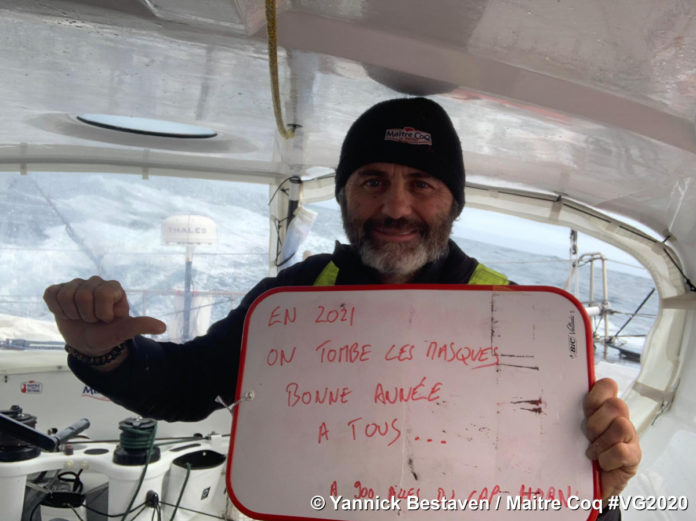 Maître CoQ
THALES
EN 2021
ON TOMBE LES MASQUES
BONNE ANNÉE
A TOUS ...
A 900 MILLES DU CAP-HORN
BIC Velleda
© Yannick Bestaven / Maitre Coq #VG2020